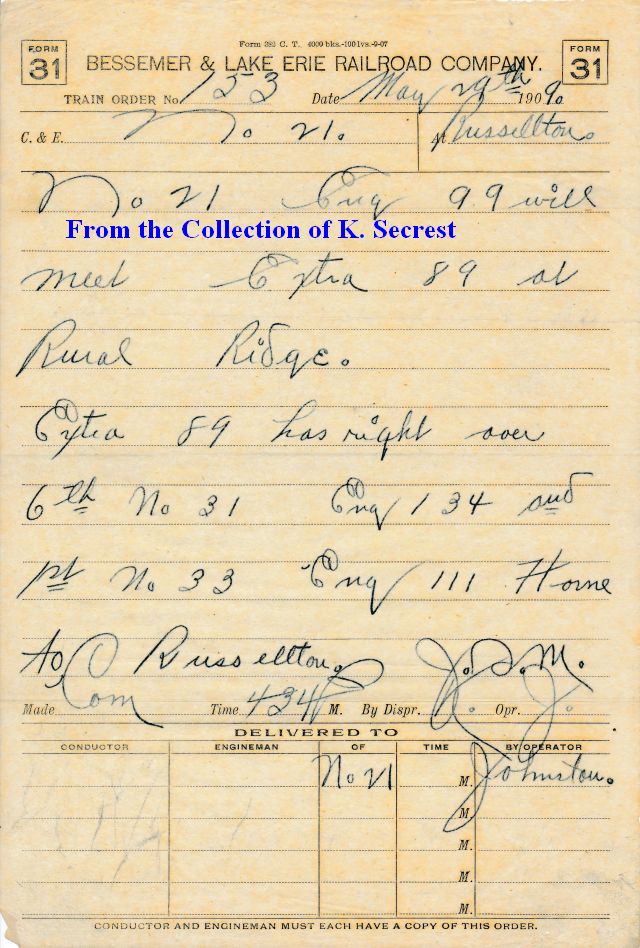 Form 382 C. T. 4000 bks.-100 lvs.-9-07
FORM 31
BESSEMER & LAKE ERIE RAILROAD COMPANY.
FORM 31
TRAIN ORDER No. 153 Date May 29th 1909.
C. & E. No 21. At Russellton.
No 21 Eng 99 will
From the Collection of K. Secrest
meet Extra 89 at
Rural Ridge.
Extra 89 has right over
6th No 31 Eng 134 and
1st No 33 Eng 111 Horne
to Russellton.
J. S. M.
Made Com Time 434 P M. By Dispr. R. Opr. J.
DELIVERED TO
CONDUCTOR ENGINEMAN OF TIME BY OPERATOR
No 21 M. Johnston.
M.
M.
M.
M.
CONDUCTOR AND ENGINEMAN MUST EACH HAVE A COPY OF THIS ORDER.